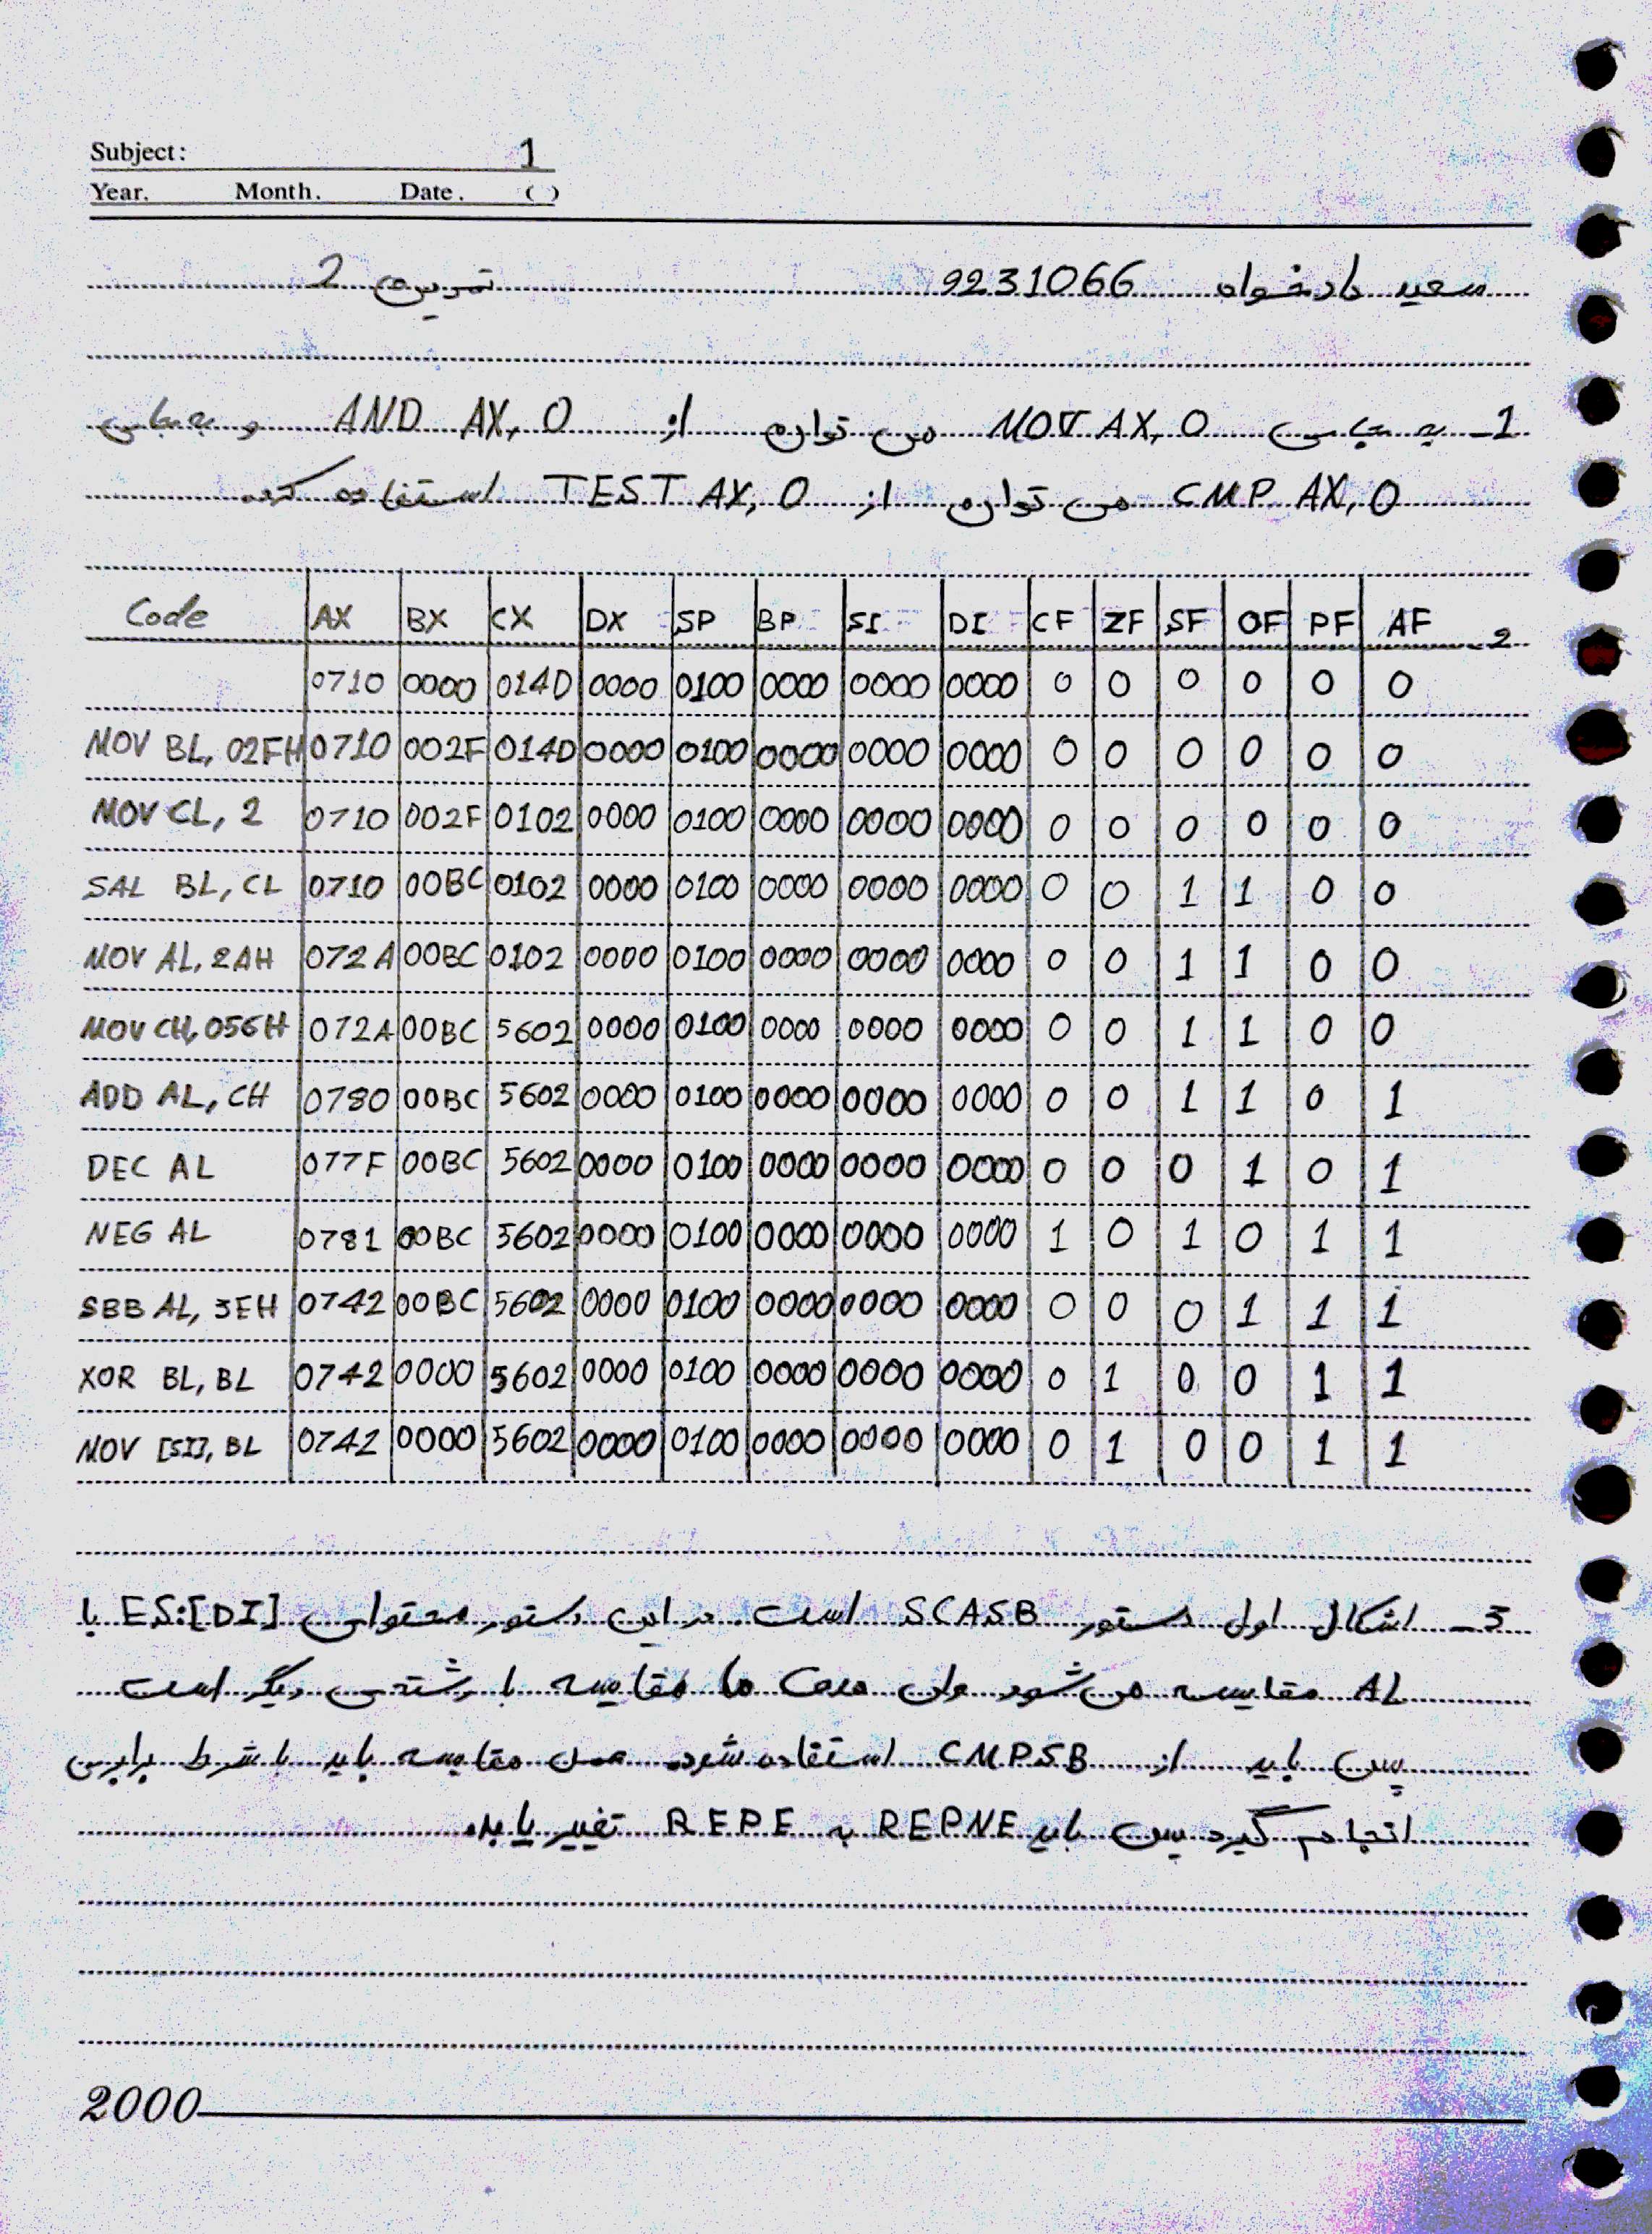 Subject: 1
Year. Month. Date. ( )
سعید دادخواه 9231066 تمرین 2
1_ به جای MOV AX, 0 می توان از AND AX, 0 و به جای
CMP AX, 0 می توان از TEST AX, 0 استفاده کرد.
2_
Code AX BX CX DX SP BP SI DI CF ZF SF OF PF AF
0710 0000 014D 0000 0100 0000 0000 0000 0 0 0 0 0 0
MOV BL, 02FH 0710 002F 014D 0000 0100 0000 0000 0000 0 0 0 0 0 0
MOV CL, 2 0710 002F 0102 0000 0100 0000 0000 0000 0 0 0 0 0 0
SAL BL, CL 0710 00BC 0102 0000 0100 0000 0000 0000 0 0 1 1 0 0
MOV AL, 2AH 072A 00BC 0102 0000 0100 0000 0000 0000 0 0 1 1 0 0
MOV CH, 056H 072A 00BC 5602 0000 0100 0000 0000 0000 0 0 1 1 0 0
ADD AL, CH 0780 00BC 5602 0000 0100 0000 0000 0000 0 0 1 1 0 1
DEC AL 077F 00BC 5602 0000 0100 0000 0000 0000 0 0 0 1 0 1
NEG AL 0781 00BC 5602 0000 0100 0000 0000 0000 1 0 1 0 1 1
SBB AL, 3EH 0742 00BC 5602 0000 0100 0000 0000 0000 0 0 0 1 1 1
XOR BL, BL 0742 0000 5602 0000 0100 0000 0000 0000 0 1 0 0 1 1
MOV [SI], BL 0742 0000 5602 0000 0100 0000 0000 0000 0 1 0 0 1 1
3_ اشکال اول دستور SCASB است. در این دستور محتوای ES:[DI] با
AL مقایسه می شود ولی هدف ما مقایسه با رشته ی دیگر است
پس باید از CMPSB استفاده شود. عمل مقایسه باید با شرط برابری
انجام گیرد پس باید REPNE به REPE تغییر یابد.
2000